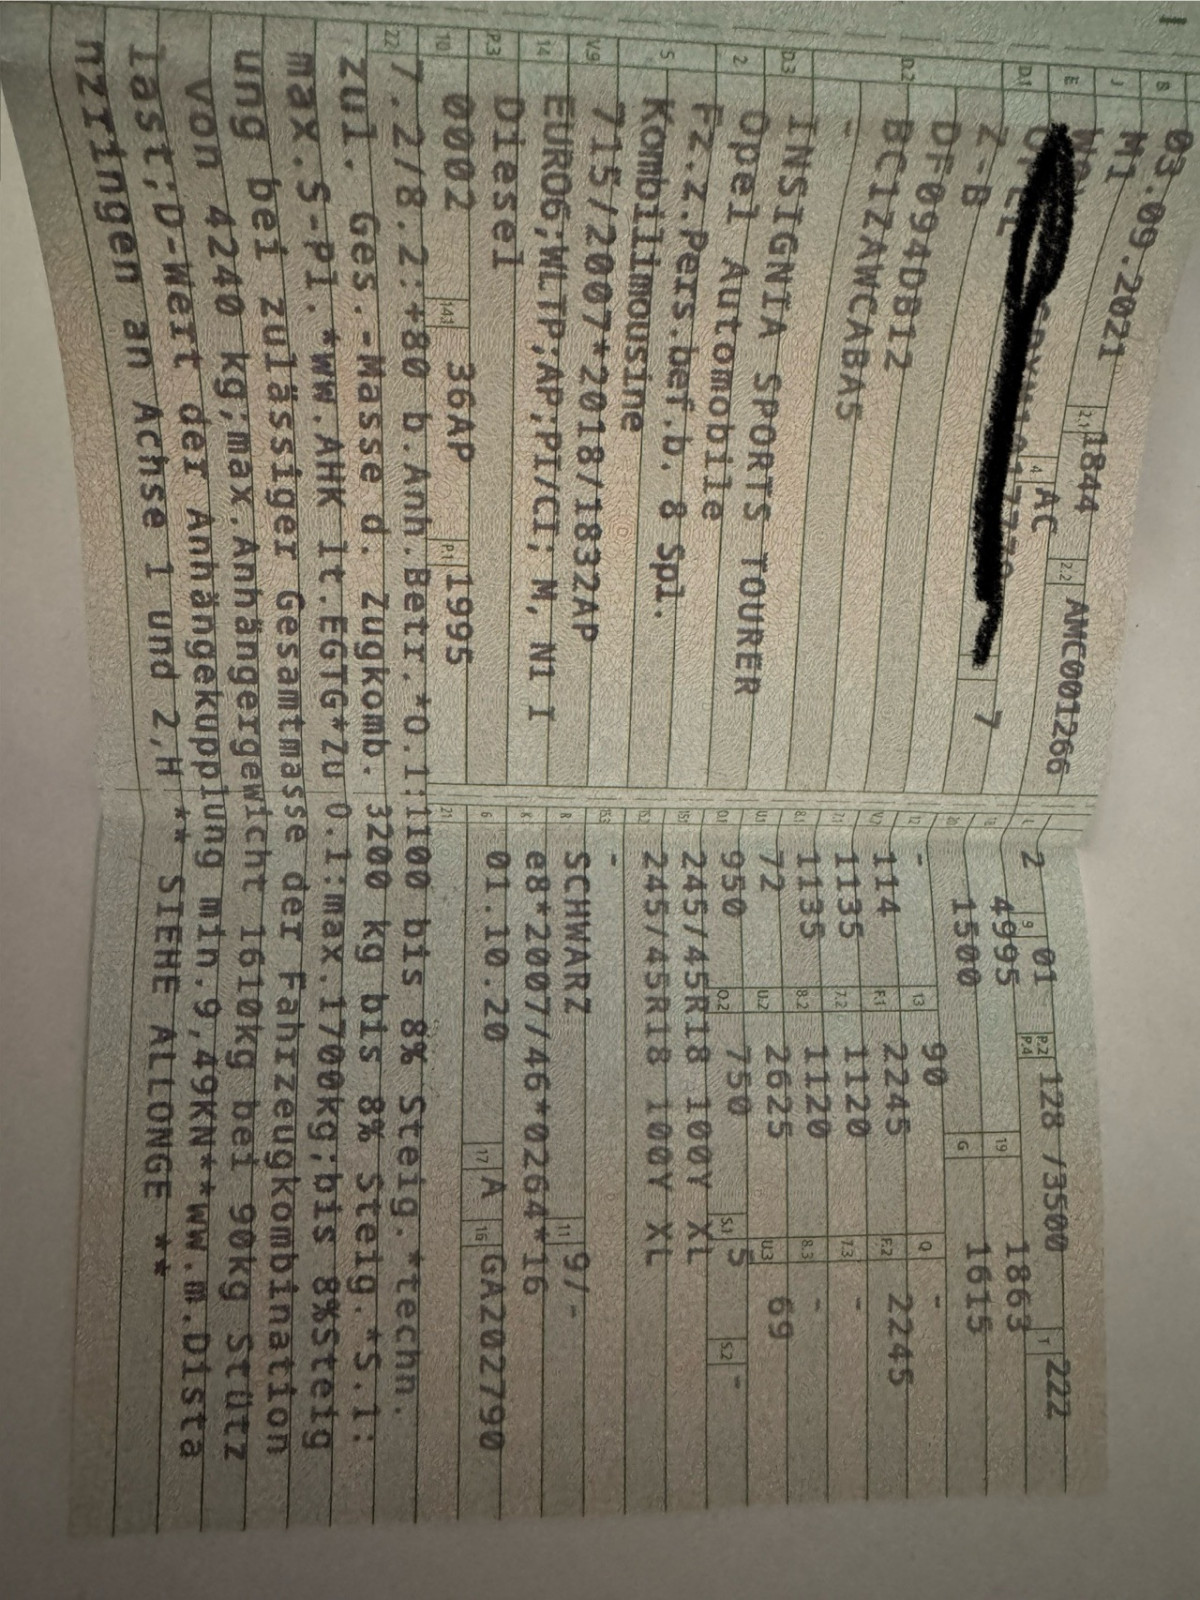 B 03.09.2021 2.1 1844 2.2 AMC001266
J M1 4 AC
E
D.1
D.2 Z-B 7
DF094DB12
BC1ZAWCABA5
-
D.3 INSIGNIA SPORTS TOURER
2 Opel Automobile
5 Fz.z.Pers.bef.b. 8 Spl.
Kombilimousine
V.9 715/2007*2018/1832AP
14 EURO6;WLTP;AP;PI/CI; M, N1 I
P.3 Diesel
10 0002 14.1 36AP P.1 1995
L 2 9 01 P.2 P.4 128 /3500 T 222
18 4995 19 1863
20 1500 G 1615
12 - 13 90 Q -
V.7 114 F.1 2245 F.2 2245
7.1 1135 7.2 1120 7.3 -
8.1 1135 8.2 1120 8.3 -
U.1 72 U.2 2625 U.3 69
O.1 950 O.2 750 S.1 5 S.2 -
15.1 245/45R18 100Y XL
15.2 245/45R18 100Y XL
15.3 -
R SCHWARZ 11 9/-
K e8*2007/46*0264*16
6 01.10.20 17 A 16 GA202790
21
22 7.2/8.2:+80 b.Anh.Betr.*O.1:1100 bis 8% Steig.*techn.
zul. Ges.-Masse d. Zugkomb. 3200 kg bis 8% Steig.*S.1:
max.S-Pl.*ww.AHK lt.EGTG*Zu O.1:max.1700kg;bis 8%Steig
ung bei zulässiger Gesamtmasse der Fahrzeugkombination
von 4240 kg;max.Anhängergewicht 1610kg bei 90kg Stütz
last;D-Wert der Anhängekupplung min.9,49KN**ww.m.Dista
nzringen an Achse 1 und 2,H ** SIEHE ALLONGE **